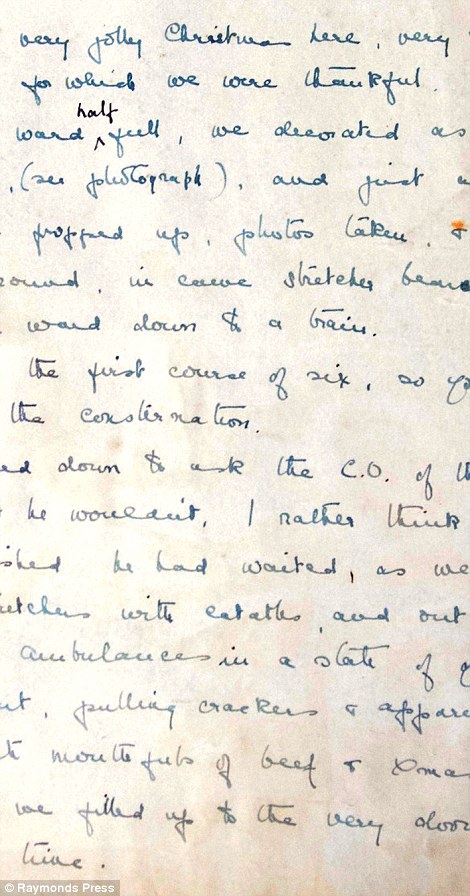 very jolly Christmas here, very
for which we were thankful.
half
ward ^ full, we decorated as
, (see photograph), and just
propped up, photos taken, &
round, in came stretcher beare
ward down to a train.
the first course of six, so
the consternation.
ed down to ask the C.O. of th
he wouldn't. I rather think
ished he had waited, as we
retchers with eatables, and out
ambulances in a state of
nt, pulling crackers & appare
mouthfuls of beef & Xmas
we filled up to the very door
time.
© Raymonds Press